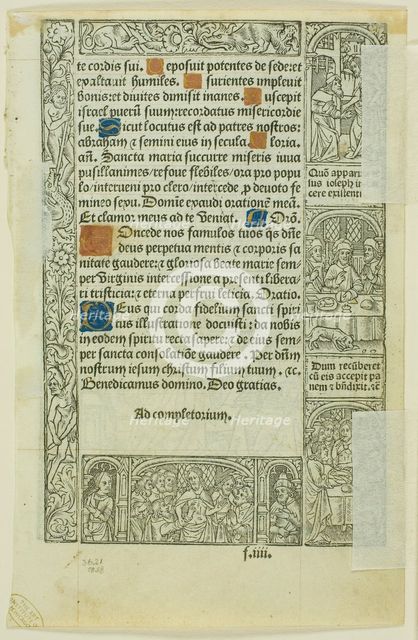 te cordis sui. Deposuit potentes de sede: et
exaltauit humiles. Esurientes impleuit
bonis: et diuites dimisit inanes. Suscepit
israel puerū suum: recordatus misericordie
sue. Sicut locutus est ad patres nostros:
abraham & semini eius in secula. Gloria.
añ. Sancta maria succurre miseris iuua
pusillanimes / refoue flebiles / ora pro popu
lo / interueni pro clero / intercede p̱ deuoto fe
mineo sexu. Domīe exaudi orationē meā.
Et clamor meus ad te veniat. Orō.
Concede nos famulos tuos q̄s dn̄e
deus perpetua mentis & corporis sa
nitate gaudere: & gloriosa beate marie sem
per virginis intercessione a presenti libera
ri tristicia: & eterna perfrui leticia. Oratio.
Deus qui corda fidelium sancti spiri
tus illustratione docuisti: da nobis
in eodem spiritu recta sapere: & de eius sem
per sancta consolatiōe gaudere. Per dn̄m
nostrum iesum christum filium tuum. &c.
Benedicamus domino. Deo gratias.
Ad completorium.
Quō appar
sus ioseph in
cere existenti
Dum recūberet
cū eis accepit pa
nem & bn̄dixit. &c
f.iiii.
heritage
Heritage